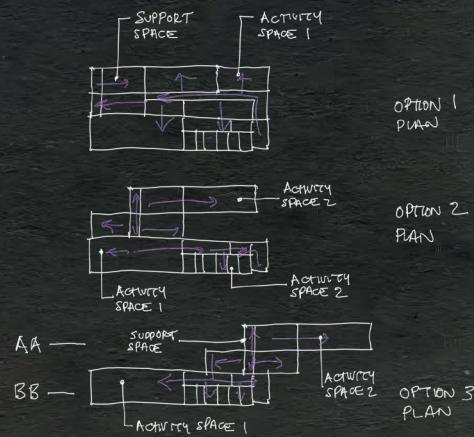 SUPPORT
SPACE
ACTIVITY
SPACE 1
OPTION 1
PLAN
ACTIVITY
SPACE 2
OPTION 2
PLAN
ACTIVITY
SPACE 1
ACTIVITY
SPACE 2
AA
SUPPORT
SPACE
BB
ACTIVITY
SPACE 2
OPTION 3
PLAN
ACTIVITY SPACE 1